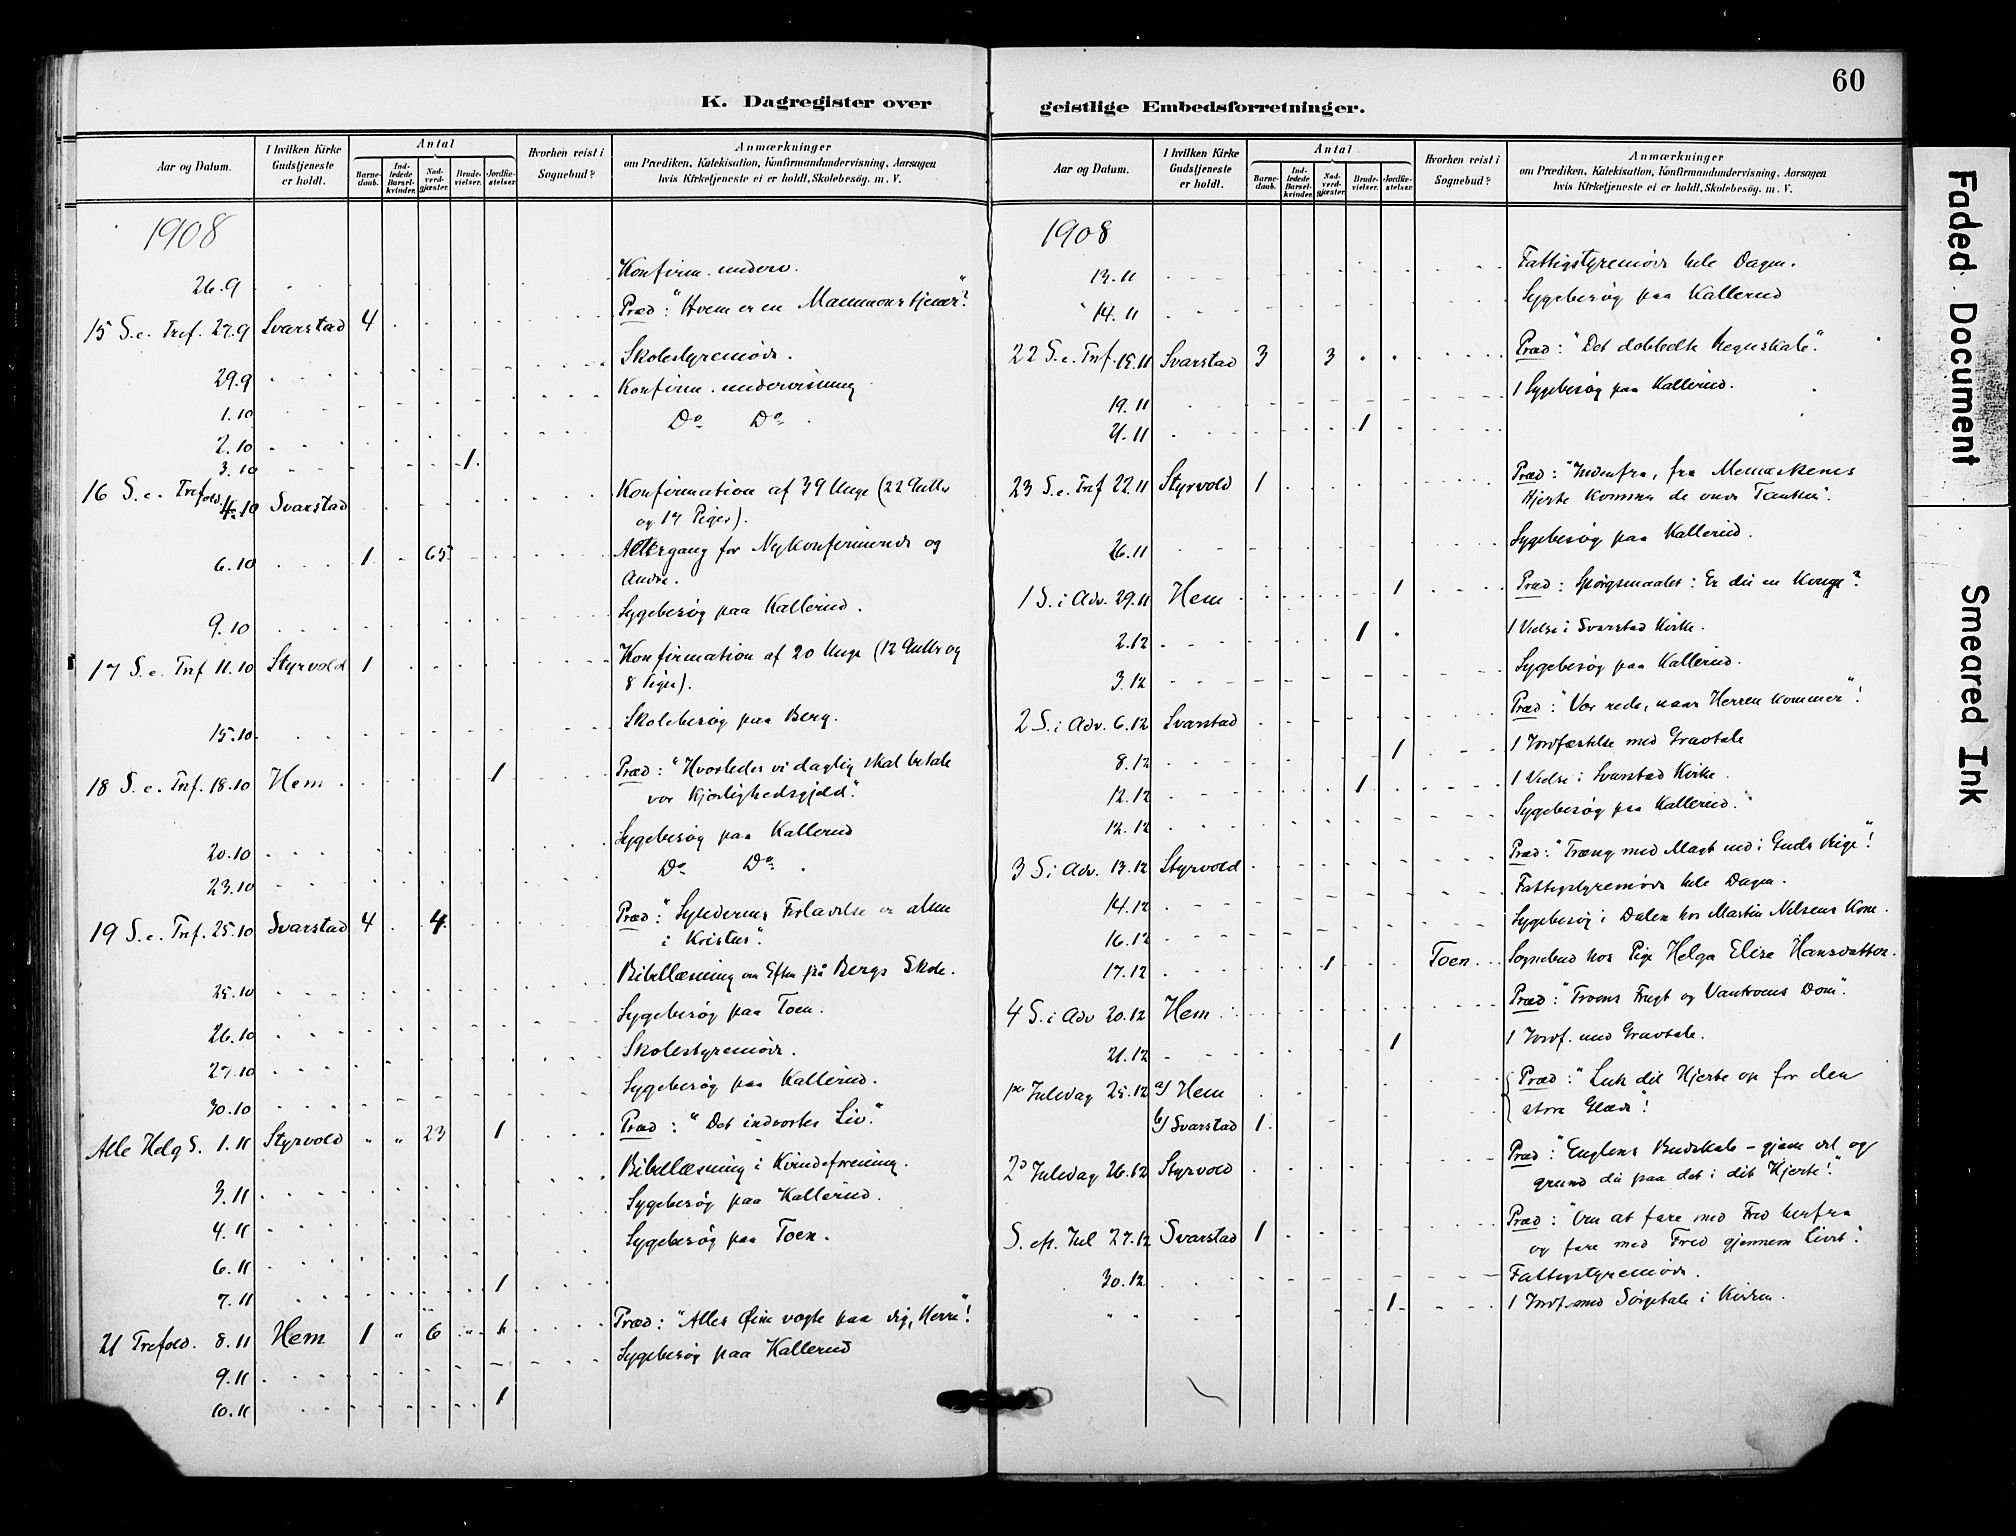 60
K. Dagregister over
geistlige Embedsforretninger.
Aar og Datum.
I hvilken Kirke Gudstjeneste er holdt.
Antal
Barnedaab.
Indledede Barselkvinder.
Nadverdgjæster.
Brudevielser.
Jordfæstelser.
Hvorhen reist i Sognebud?
Anmærkninger
om Prædiken, Katekisation, Konfirmandundervisning, Aarsagen
hvis Kirketjeneste ei er holdt, Skolebesøg. m. V.
1908
26.9 Konfirm. underv.
15 S. e. Tref. 27.9 Svarstad 4 Præd: "Hvem er en Mammons tjener?"
29.9 Skolestyremøde.
1.10 Konfirm. undervisning
2.10 Do Do
3.10 1
16 S. e. Trefold. 4.10 Svarstad Konfirmation af 39 Unge (22 Gutter
og 17 Piger).
6.10 1 65 Altergang for Nykonfirmerede og
Andre.
9.10 Sygebesøg paa Kallerud.
17 S. e. Tref 11.10 Styrvold 1 Konfirmation af 20 Unge (12 Gutter og
8 Piger).
15.10 Skolebesøg paa Berg.
18 S. e. Tref. 18.10 Hem 1 Præd: "Hvorledes vi daglig skal betale
vor Kjærlighedsgjæld".
20.10 Sygebesøg paa Kallerud
23.10 Do Do
19 S. e. Tref. 25.10 Svarstad 4 4 Præd: "Syndernes Forladelse er alene
i Kristus".
25.10 Bibellæsning om Eftm på Bergs Skole.
26.10 Sygebesøg paa Toen.
27.10 Skolestyremøde.
30.10 Sygebesøg paa Kallerud.
Alle Helg S. 1.11 Styrvold " " 23 1 Præd: "Det indvortes Liv".
3.11 Bibellæsning i Kvindeforening.
4.11 Sygebesøg paa Kallerud.
6.11 Sygebesøg paa Toen.
7.11 1
21 Trefold. 8.11 Hem 1 " 6 Præd: "Alles Øine vogte paa dig, Herre"!
9.11 Sygebesøg paa Kallerud
10.11 1
Aar og Datum.
I hvilken Kirke Gudstjeneste er holdt.
Antal
Barnedaab.
Indledede Barselkvinder.
Nadverdgjæster.
Brudevielser.
Jordfæstelser.
Hvorhen reist i Sognebud?
Anmærkninger
om Prædiken, Katekisation, Konfirmandundervisning, Aarsagen
hvis Kirketjeneste ei er holdt, Skolebesøg. m. V.
1908
13.11 Fattigstyremøde hele Dagen.
14.11 Sygebesøg paa Kallerud
22 S. e. Tref. 15.11 Svarstad 3 3 Præd: "Det dobbelte Regnskab".
19.11 1 Sygebesøg paa Kallerud.
21.11 1
23 S. e. Tref 22.11 Styrvold 1 Præd: "Indenfra, fra Menneskenes
Hjerte kommer de onde Tanker".
26.11 Sygebesøg paa Kallerud.
1 S. i Adv. 29.11 Hem 1 Præd: Spørgsmaalet: Er du en Konge?
2.12 1 1 Vielse i Svarstad Kirke.
3.12 Sygebesøg paa Kallerud.
2 S. i Adv. 6.12 Svarstad Præd: "Vær rede, naar Herren kommer"!
8.12 1 1 Jordfæstelse med Gravtale
12.12 1 1 Vielse i Svarstad Kirke.
12.12 Sygebesøg paa Kallerud.
3 S i Adv. 13.12 Styrvold Præd: "Træng med Magt ind i Guds Rige"!
14.12 Fattigstyremøde hele Dagen.
16.12 Sygebesøg i Dalen hos Martin Nilsens Kone.
17.12 1 Toen Sognebud hos Pige Helga Elise Hansdatter.
4 S. i Adv 20.12 Hem Præd: "Troens Frugt og Vantroens Dom".
21.12 1 1 Jordf. med Gravtale.
1ste Juledag 25.12 a) Hem Præd: "Luk dit Hjerte op for den
store Glæde"!
b) Svarstad 1
2d Juledag 26.12 Styrvold Præd: "Englens Budskab - gjem vel og
grund du paa det i dit Hjerte!"
S. eft. Jul 27.12 Svarstad 1 Præd: "Om at fare med Fred herfra
og fare med Fred gjennem Livet".
30.12 Fattigstyremøde.
" " 1 1 Jordf. med Sørgetale i Kirken.
Faded Document
Smeared Ink